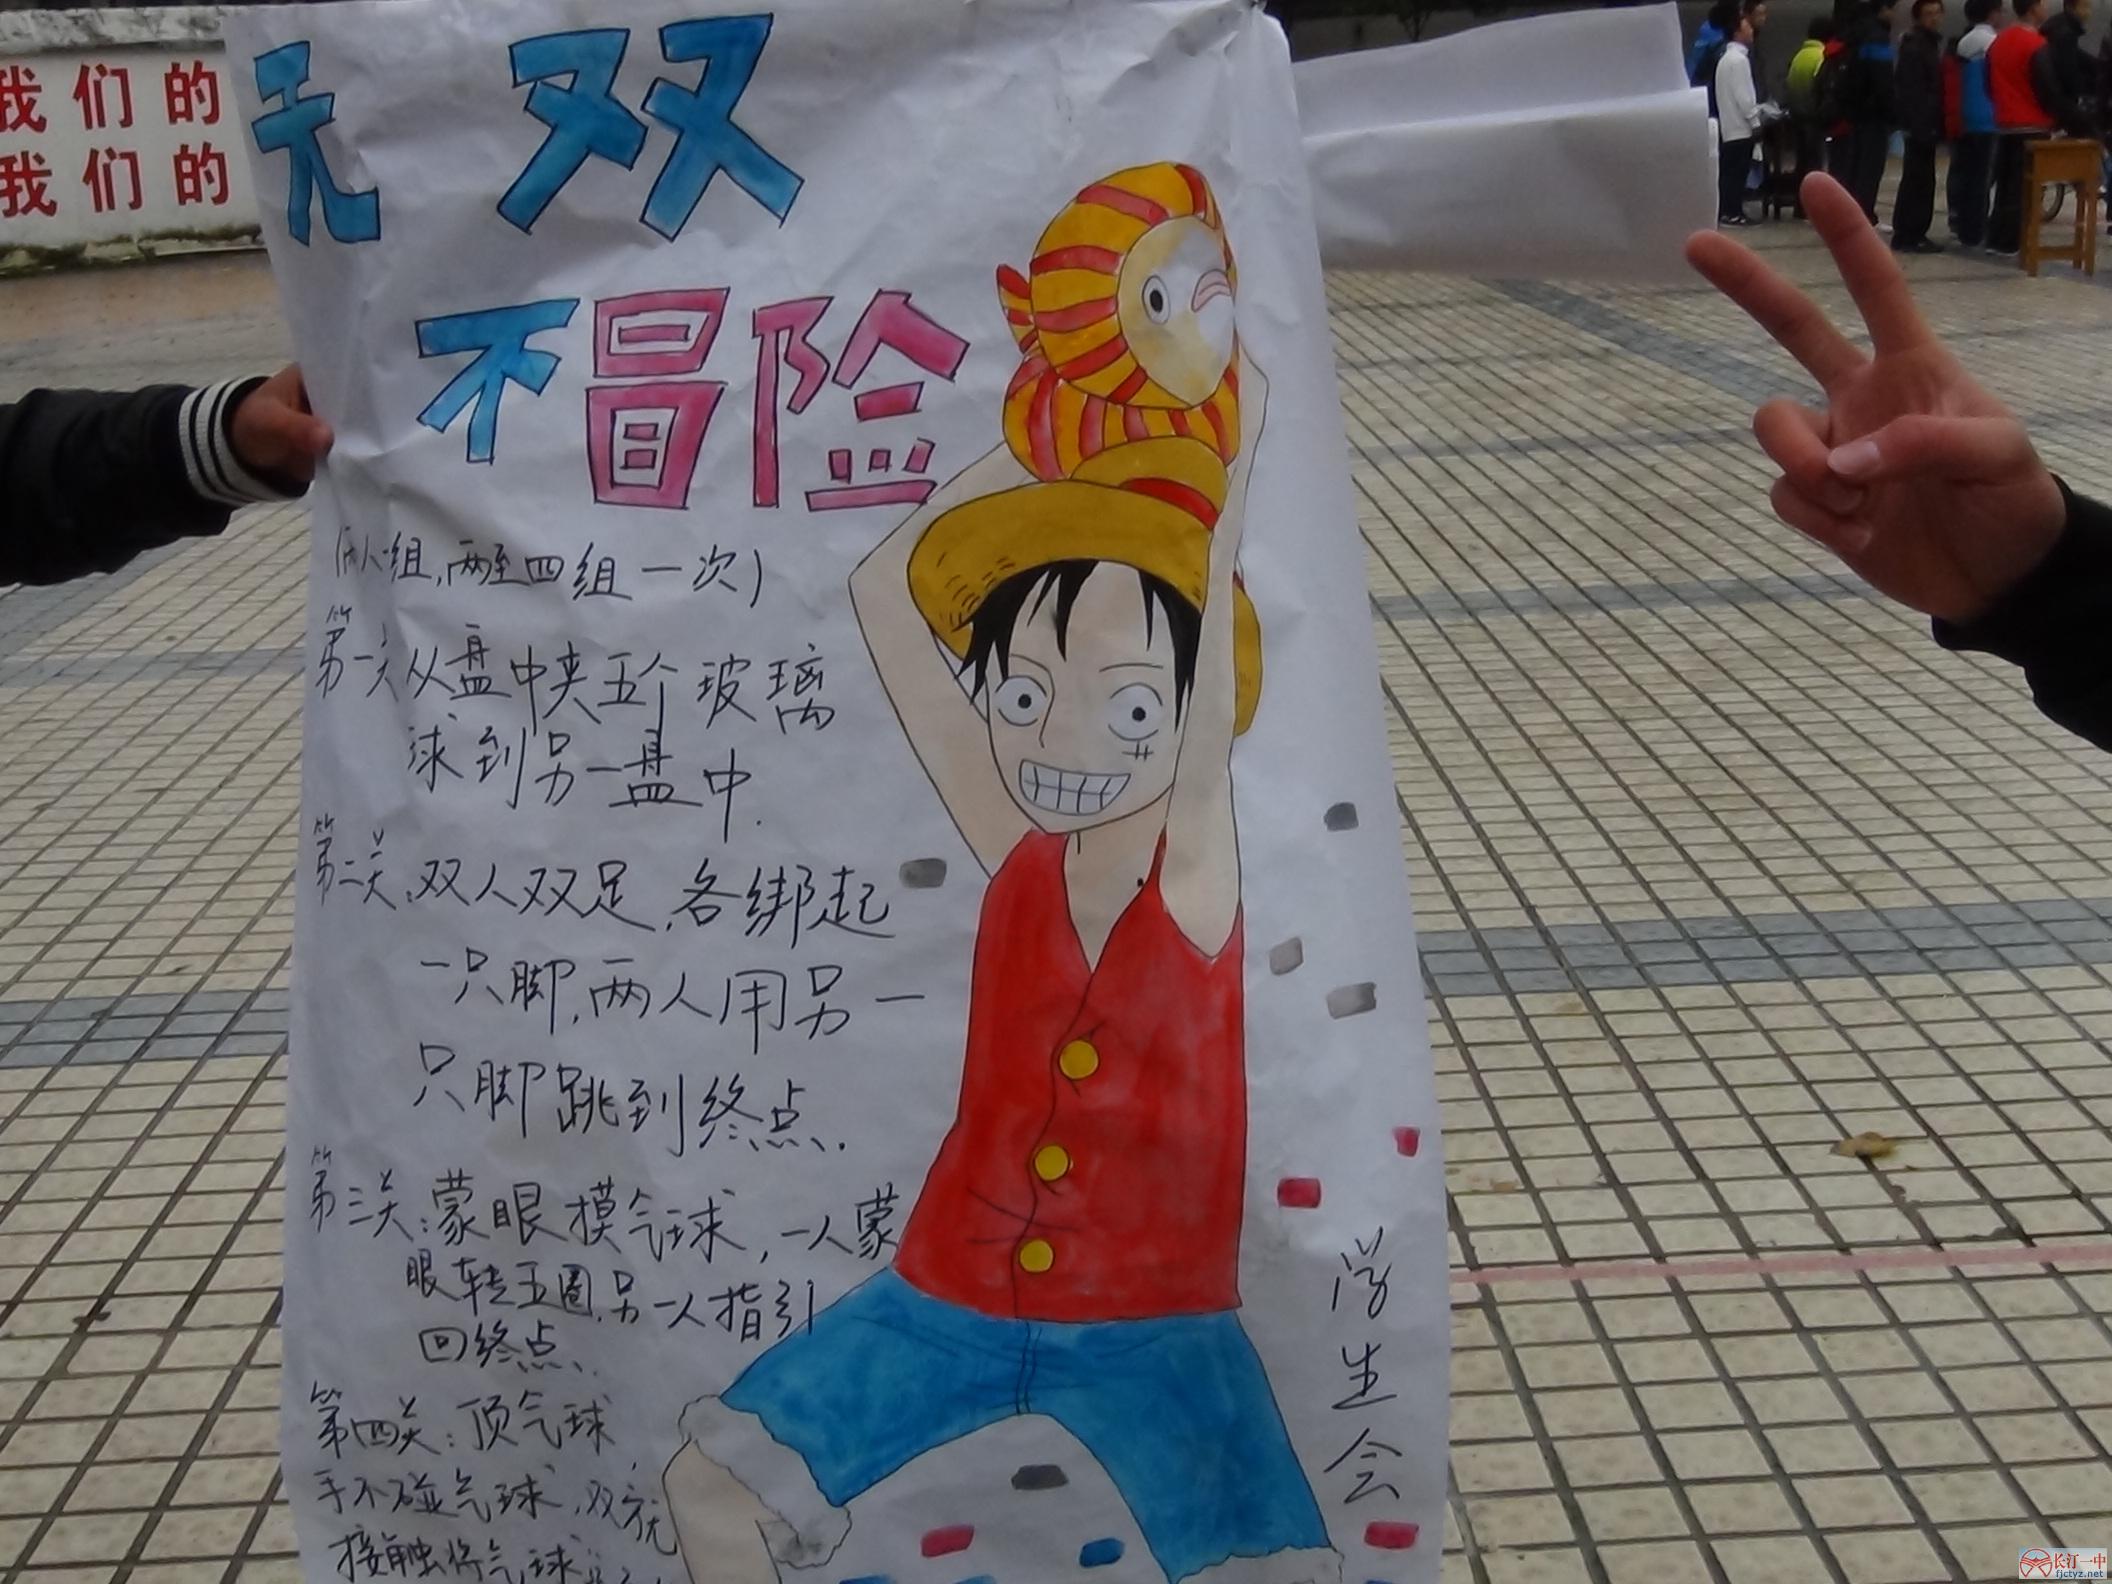 我们的
我们的
无双
不冒险
组,两至四组一次)
第一关从盘中夹五个玻璃
球到另一盘中.
第二关、双人双足,各绑起
一只脚,两人用另一
只脚跳到终点.
第三关:蒙眼摸气球,一人蒙
眼转五圈,另一人指引
回终点.
第四关:顶气球,
手不碰气球,双方
接触将气球
学生会
长汀一中
fjctyz.net